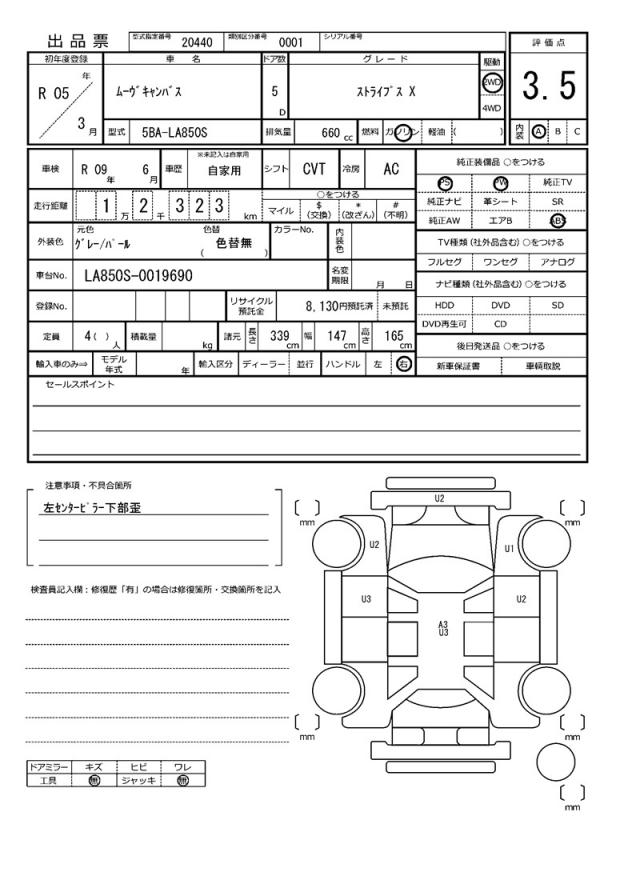 出品票
型式指定番号 20440 類別区分番号 0001 シリアル番号
評価点
3.5
初年度登録 車名 ドア数 グレード 駆動
R 05 年 3 月
ムーヴキャンバス
5 D
ストライプス X
2WD
4WD
型式 5BA-LA850S 排気量 660 cc 燃料 ガソリン 軽油 ( )
内装 A B C
車検 R 09 年 6 月 車歴 ※未記入は自家用 自家用 シフト CVT 冷房 AC
純正装備品 ○をつける
PS PW 純正TV
純正ナビ 革シート SR
純正AW エアB ABS
走行距離 1 2 万 3 2 3 千 km
○をつける
マイル $ (交換) * (改ざん) # (不明)
外装色 元色 グレー/パール 色替 ( 色替無 ) カラーNo. 内装色
TV種類 (社外品含む) ○をつける
フルセグ ワンセグ アナログ
車台No. LA850S-0019690 名変期限 月 日
ナビ種類 (社外品含む) ○をつける
HDD DVD SD
DVD再生可 CD
登録No. リサイクル預託金 8,130円預託済 未預託
定員 4( ) 人 積載量 kg 諸元 長さ 339 cm 幅 147 cm 高さ 165 cm
後日発送品 ○をつける
新車保証書 車輌取説
輸入車のみ⇒ モデル年式 年 輸入区分 ディーラー 並行 ハンドル 左 右
セールスポイント
注意事項・不具合箇所
左センターピラー下部歪
検査員記入欄：修復歴「有」の場合は修復箇所・交換箇所を記入
ドアミラー キズ ヒビ ワレ
工具 無 ジャッキ 無
U2
[ ] mm
[ ] mm
U2
U1
U3
U2
A3
U3
[ ] mm
[ ] mm
[ ] mm